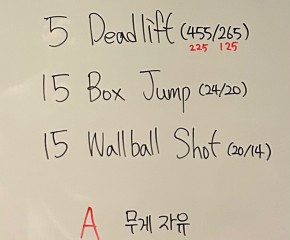 5 Deadlift (455/265)
225 125
15 Box Jump (24/20)
15 Wallball Shot (20/14)
A 무게 자유